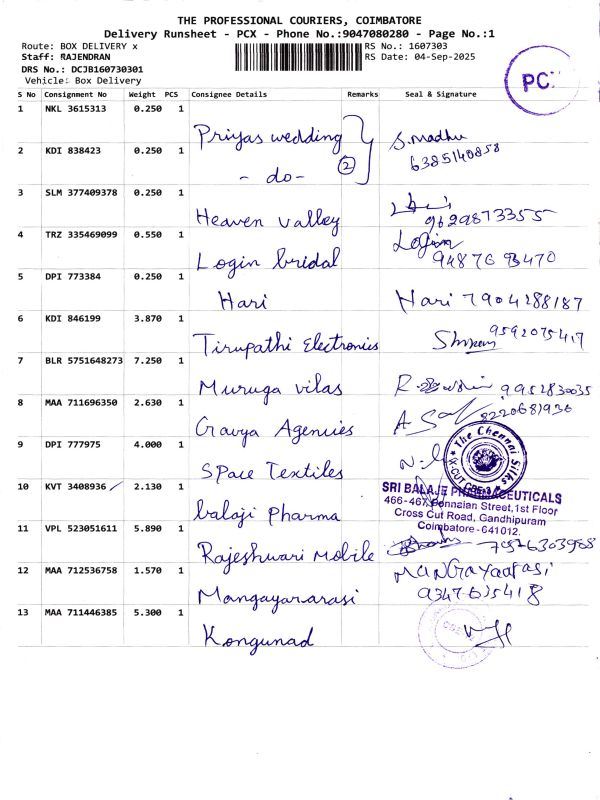 THE PROFESSIONAL COURIERS, COIMBATORE
Delivery Runsheet - PCX - Phone No.:9047080280 - Page No.:1
Route: BOX DELIVERY x RS No.: 1607303
Staff: RAJENDRAN RS Date: 04-Sep-2025
DRS No.: DCJB160730301
Vehicle: Box Delivery
PCX
S No Consignment No Weight PCS Consignee Details Remarks Seal & Signature
1 NKL 3615313 0.250 1 Priyas wedding S. Madhu
2 KDI 838423 0.250 1 - do - 2 6385140858
3 SLM 377409378 0.250 1 Heaven valley 9629873355
4 TRZ 335469099 0.550 1 Login bridal Login
5 DPI 773384 0.250 1 Hari Hari 7904288187
6 KDI 846199 3.870 1 Tirupathi Electronics 9592075417
7 BLR 5751648273 7.250 1 Muruga vilas 9952830035
8 MAA 711696350 2.630 1 Gavya Agencies 8220681936
9 DPI 777975 4.000 1 Space Textiles
The Chennai Silks
10 KVT 3408936 2.130 1 balaji pharma
SRI BALAJE PHARMACEUTICALS
466-467, Ponnaian Street, 1st Floor
Cross Cut Road, Gandhipuram
Coimbatore - 641012.
11 VPL 523051611 5.890 1 Rajeshwari Mobile
12 MAA 712536758 1.570 1 Mangayararasi Mangayaarasi
9347635418
13 MAA 711446385 5.300 1 Kongunad